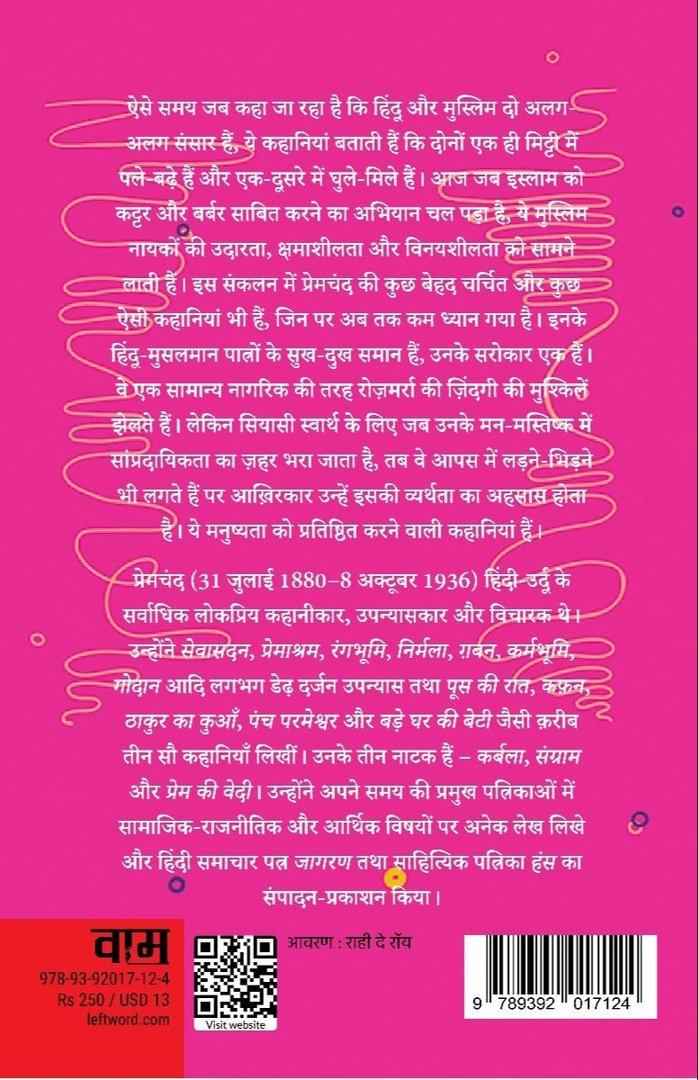 ऐसे समय जब कहा जा रहा है कि हिंदू और मुस्लिम दो अलग-
अलग संसार हैं, ये कहानियां बताती हैं कि दोनों एक ही मिट्टी में
पले-बढ़े हैं और एक-दूसरे में घुले-मिले हैं। आज जब इस्लाम को
कट्टर और बर्बर साबित करने का अभियान चल पड़ा है, ये मुस्लिम
नायकों की उदारता, क्षमाशीलता और विनयशीलता को सामने
लाती हैं। इस संकलन में प्रेमचंद की कुछ बेहद चर्चित और कुछ
ऐसी कहानियां भी हैं, जिन पर अब तक कम ध्यान गया है। इनके
हिंदू-मुसलमान पात्रों के सुख-दुख समान हैं, उनके सरोकार एक हैं।
वे एक सामान्य नागरिक की तरह रोज़मर्रा की ज़िंदगी की मुश्किलें
झेलते हैं। लेकिन सियासी स्वार्थ के लिए जब उनके मन-मस्तिष्क में
सांप्रदायिकता का ज़हर भरा जाता है, तब वे आपस में लड़ने-भिड़ने
भी लगते हैं पर आख़िरकार उन्हें इसकी व्यर्थता का अहसास होता
है। ये मनुष्यता को प्रतिष्ठित करने वाली कहानियां हैं।
प्रेमचंद (31 जुलाई 1880–8 अक्टूबर 1936) हिंदी-उर्दू के
सर्वाधिक लोकप्रिय कहानीकार, उपन्यासकार और विचारक थे।
उन्होंने सेवासदन, प्रेमाश्रम, रंगभूमि, निर्मला, ग़बन, कर्मभूमि,
गोदान आदि लगभग डेढ़ दर्जन उपन्यास तथा पूस की रात, कफ़न,
ठाकुर का कुआँ, पंच परमेश्वर और बड़े घर की बेटी जैसी क़रीब
तीन सौ कहानियाँ लिखीं। उनके तीन नाटक हैं – कर्बला, संग्राम
और प्रेम की वेदी। उन्होंने अपने समय की प्रमुख पत्रिकाओं में
सामाजिक-राजनीतिक और आर्थिक विषयों पर अनेक लेख लिखे
और हिंदी समाचार पत्र जागरण तथा साहित्यिक पत्रिका हंस का
संपादन-प्रकाशन किया।
वाम
978-93-92017-12-4
Rs 250 / USD 13
leftword.com
Visit website
आवरण : राही दे रॉय
9 789392 017124